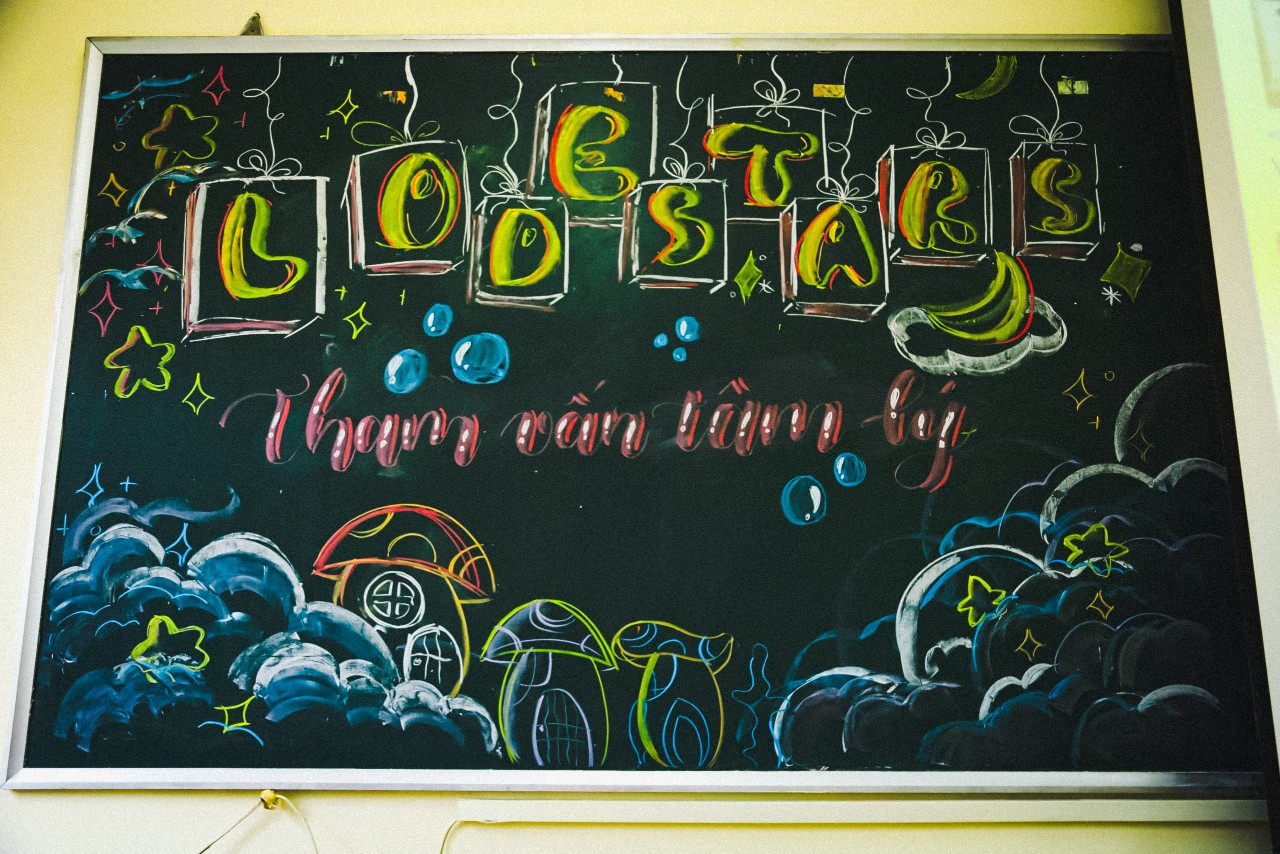 LODESTARS
Tham vấn tâm lý